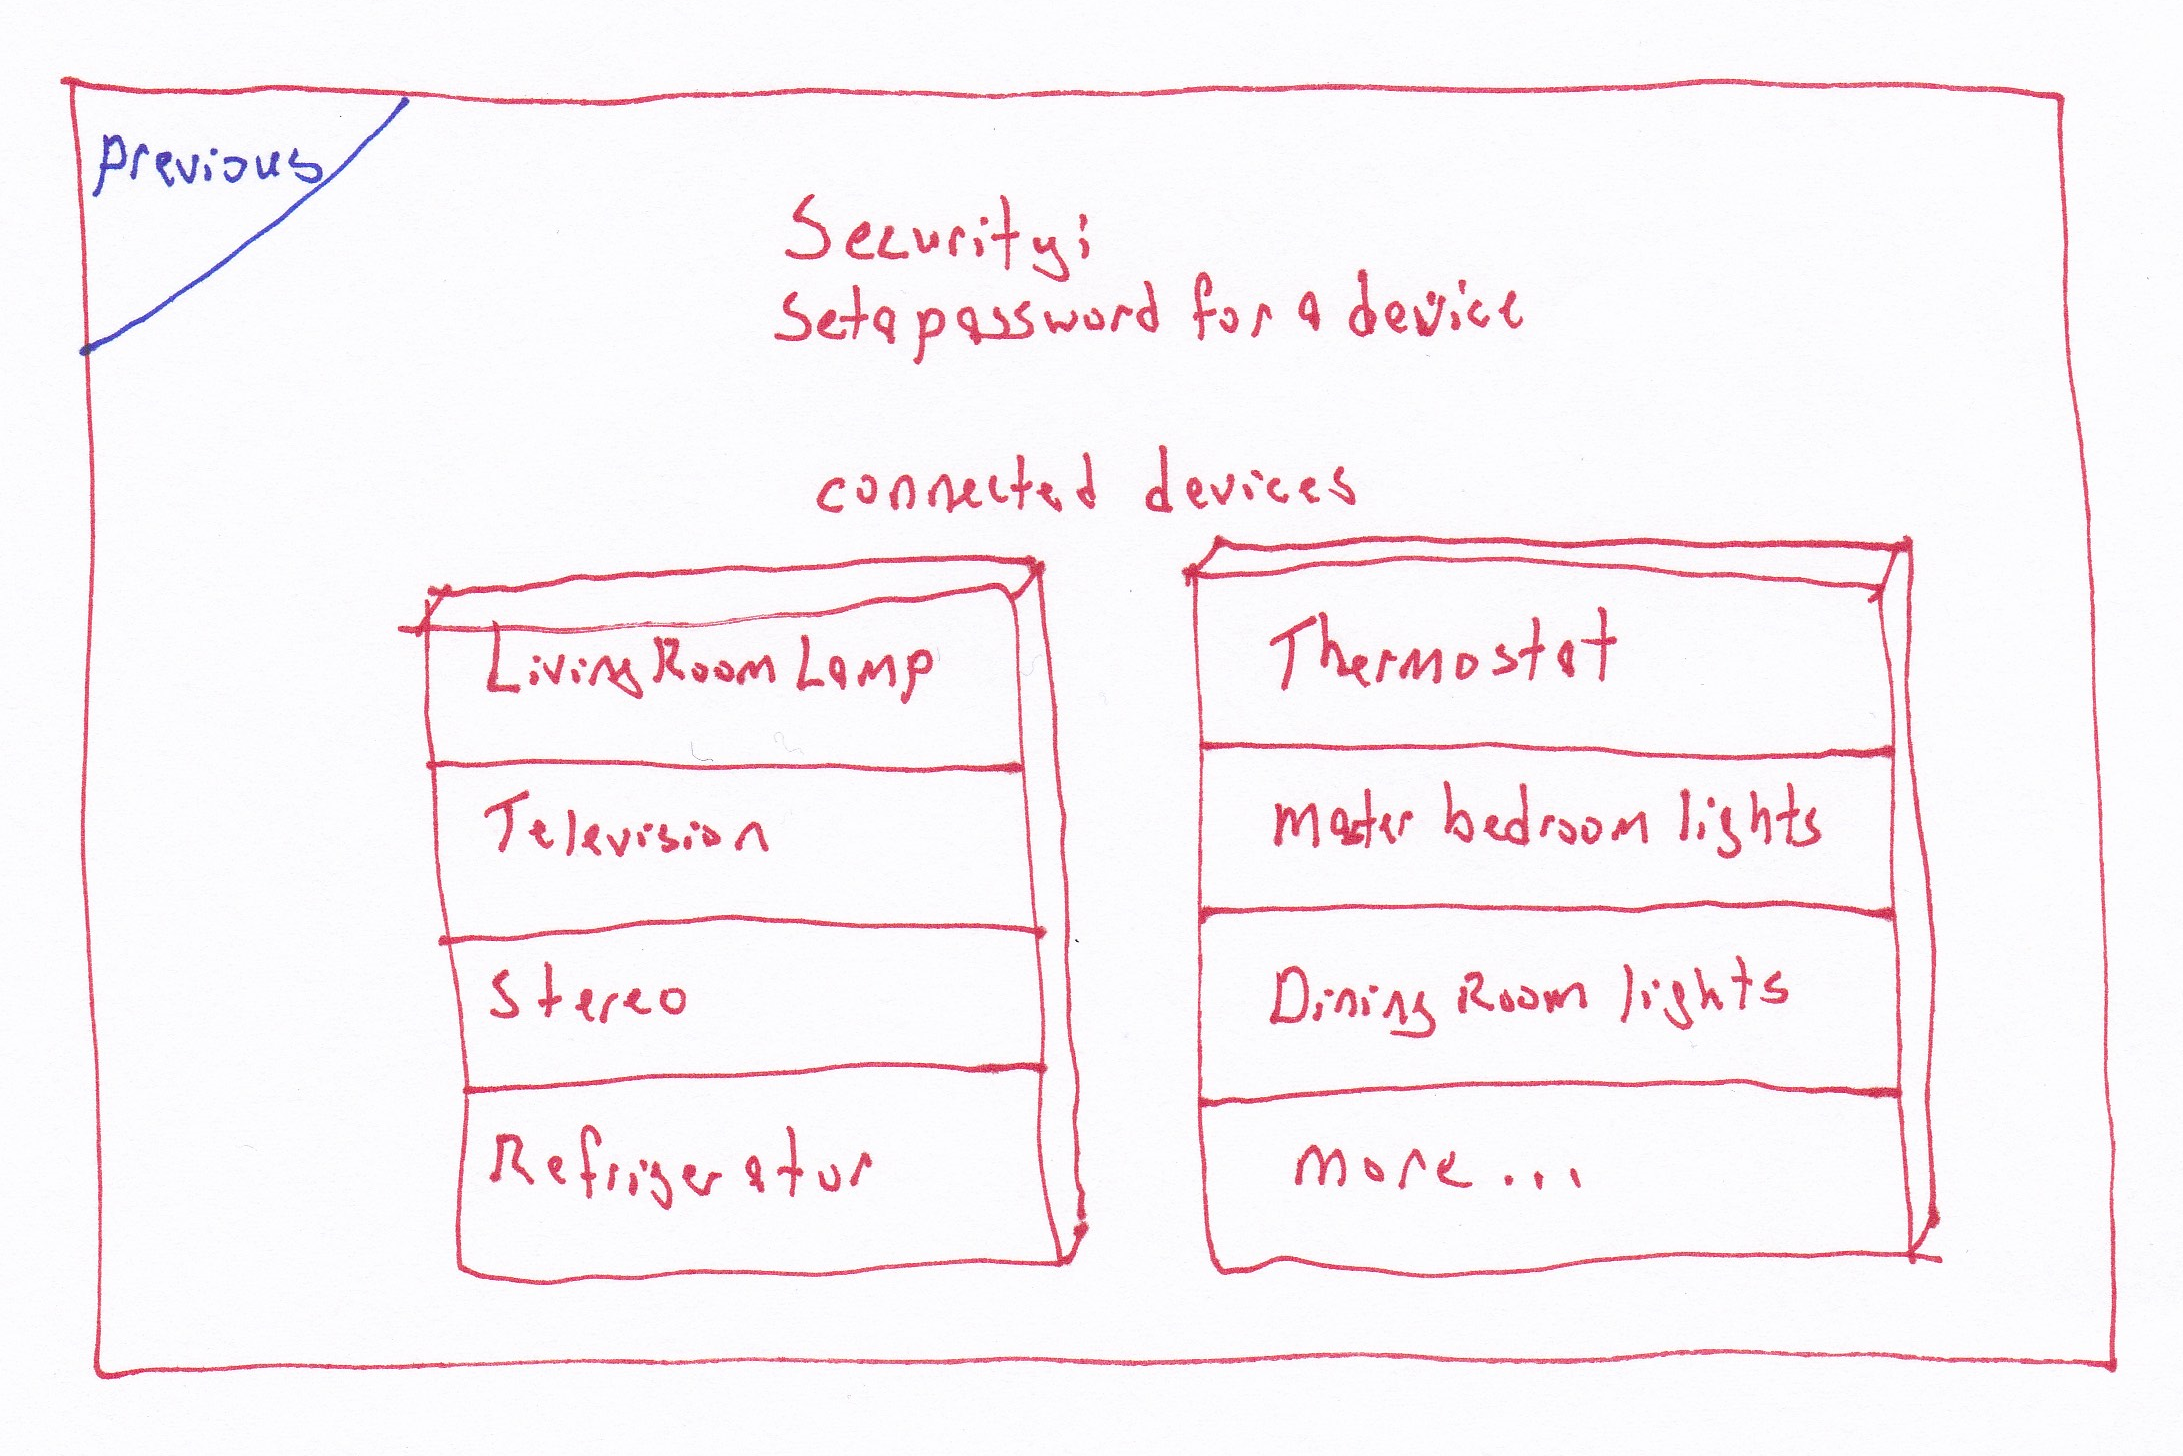 Previous
Security:
Set a password for a device
connected devices
Living Room Lamp
Television
Stereo
Refrigerator
Thermostat
Master bedroom lights
Dining Room lights
more...